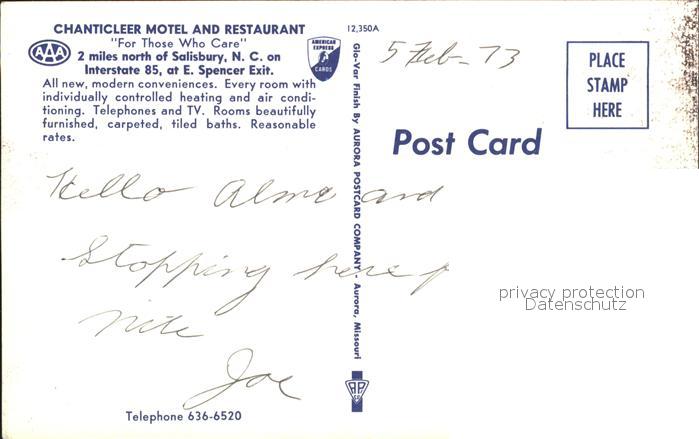 CHANTICLEER MOTEL AND RESTAURANT
"For Those Who Care"
AAA
2 miles north of Salisbury, N. C. on
Interstate 85, at E. Spencer Exit.
AMERICAN EXPRESS CARDS
All new, modern conveniences. Every room with
individually controlled heating and air condi-
tioning. Telephones and TV. Rooms beautifully
furnished, carpeted, tiled baths. Reasonable
rates.
Hello Alma and
Stopping here
nite
Joe
Telephone 636-6520
12,350A
Glo-Var Finish By AURORA POSTCARD COMPANY - Aurora, Missouri
5 Feb - 73
Post Card
PLACE
STAMP
HERE
privacy protection
Datenschutz